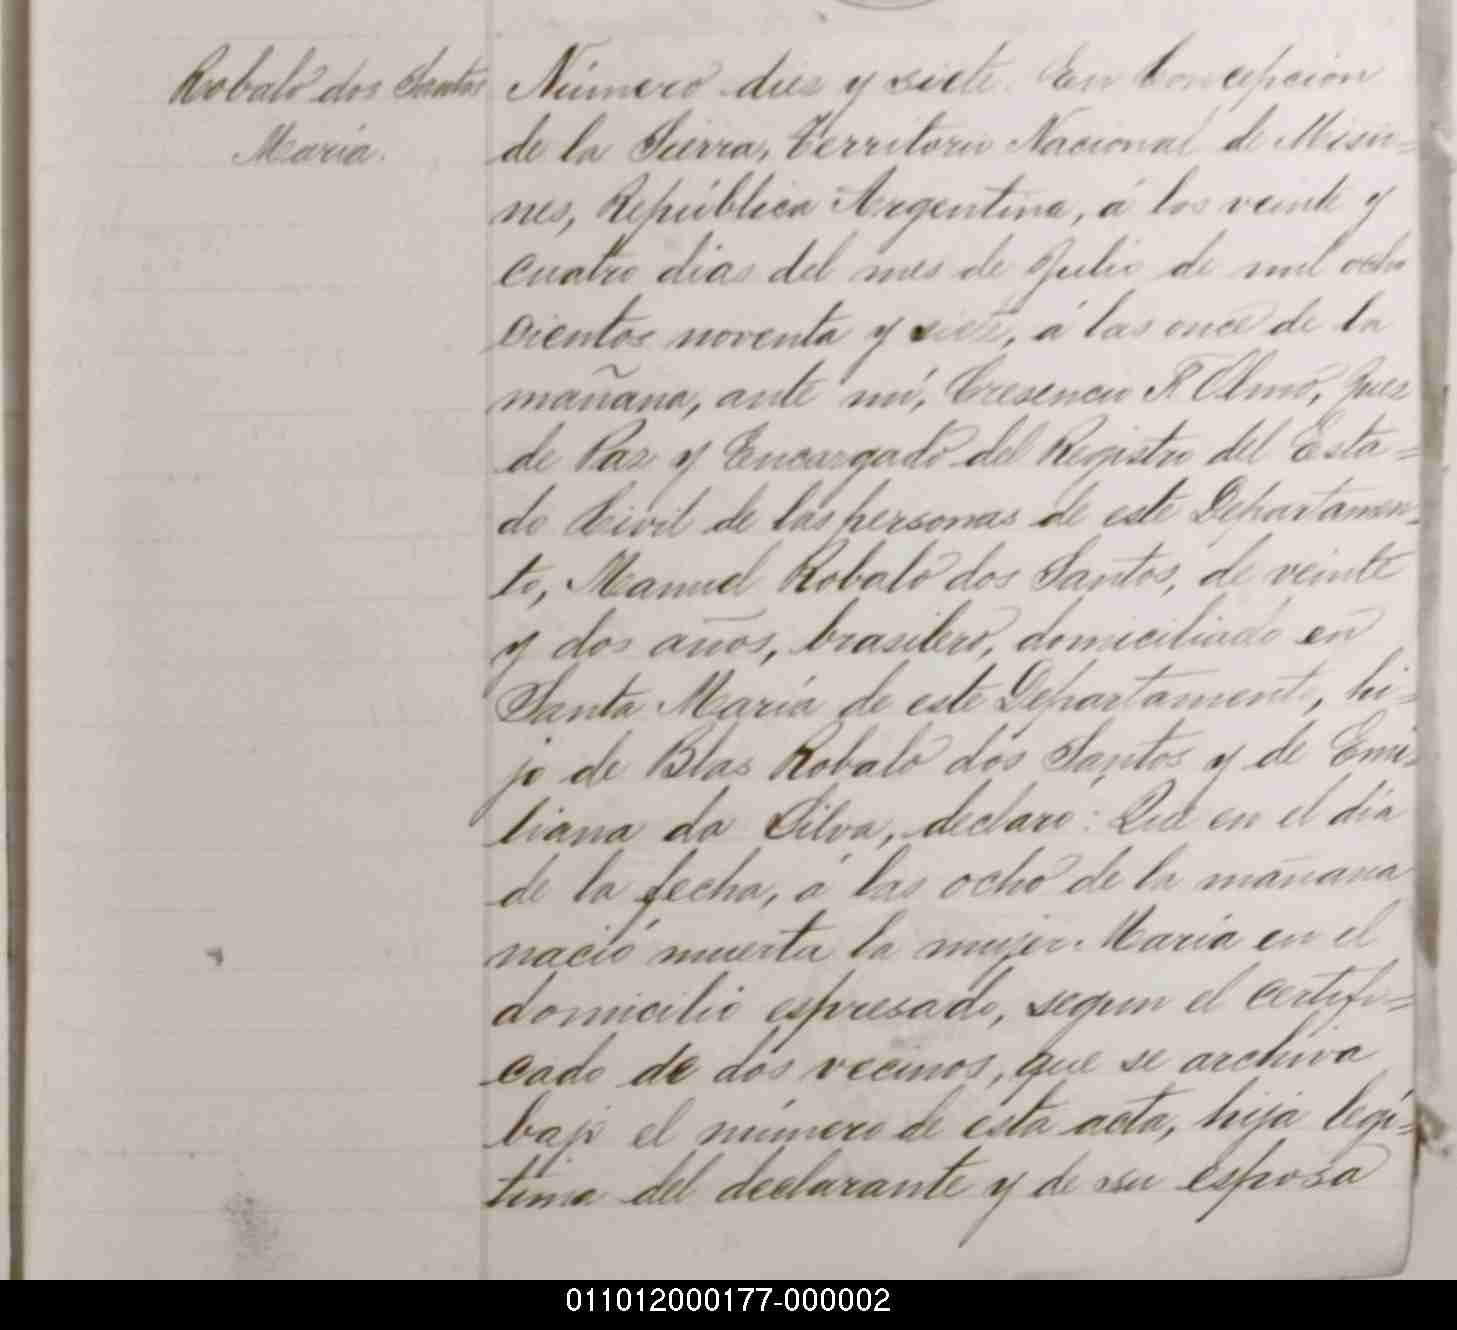 Robalo dos Santos
María.
Número diez y siete. En Concepcion
de la Sierra, Territorio Nacional de Misio=
nes, República Argentina, á los veinte y
cuatro dias del mes de Julio de mil ocho
cientos noventa y siete, á las once de la
mañana, ante mí, Cresencio R. Olmo, Juez
de Paz y Encargado del Registro del Esta=
do Civil de las personas de este Departamen=
to, Manuel Robalo dos Santos, de veinte
y dos años, brasilero, domiciliado en
Santa María de este Departamento, hi=
jo de Blas Robalo dos Santos y de Emi=
liana da Silva, declaró: Que en el día
de la fecha, á las ocho de la mañana
nació muerta la mujer María en el
domicilio espresado, segun el certifi=
cado de dos vecinos, que se archiva
bajo el número de esta acta, hija legí=
tima del declarante y de su esposa
011012000177-000002